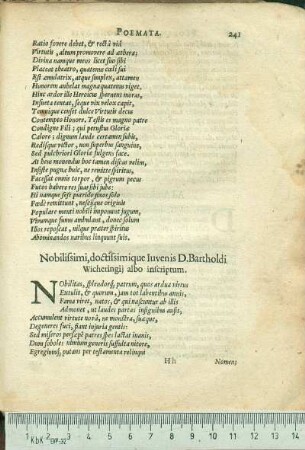 POEMATA. 241
Ratio fovere debet, & rectâ viâ
Virtutis, alium promovere ad æthera;
Divina namque mens licet sua sibi
Placeat theatro, quatenus cæli sui
Est æmulatrix, atque simplex, attamen
Honorem anhelat magna quatenus viget.
Hinc ardor ille Heroicus sperneret moras,
Desueta tentas, seque vix velox capit,
Tonusque censet dulce Virtutis decus
Contempto Honore. Testis es magno patre
Condigne Fili; qui perustus Gloriæ
Calore; dignum laude certamen subis,
Redisque victor, non superbus sanguine,
Sed pulchriori Gloriæ fulgens face.
At heu movendus hoc tamen discas velim,
Infiste pugnæ huic, ne remitte spiritus,
Facessat omnis torpor, & pigrum pecus
Futes habere res suas sibi jube:
Hi namque sunt præsidio firmo solo
Fædi remittunt, nescisque originis
Populare menti nobili imponunt jugum,
Plerumque fumos ambulant, donec solum
Illos reposcat, utque præter spiritus
Abominandos naribus linquunt suis.
Nobilissimi, doctissimique Iuvenis D. Bartholdi
Wicheringij albo inscriptum.
NObilitas, splendorq; patrum, quos ardua virtus
Extulit, & quorum, jam tot labentibus annis,
Fama viret, natos, & qui nascuntur ab illis
Admonet, ut laudes partas insignibus ausis,
Accumulent virtute novâ, ne monstra, suæque,
Degeneres fuci, fiant injuria gentis:
Sed miseros persæpè patres spes lactat inanis,
Dum soboles nimium generis suffulta nitore,
Egregiumq; putans per testamenta relinqui
Hh Nomen:
KbK